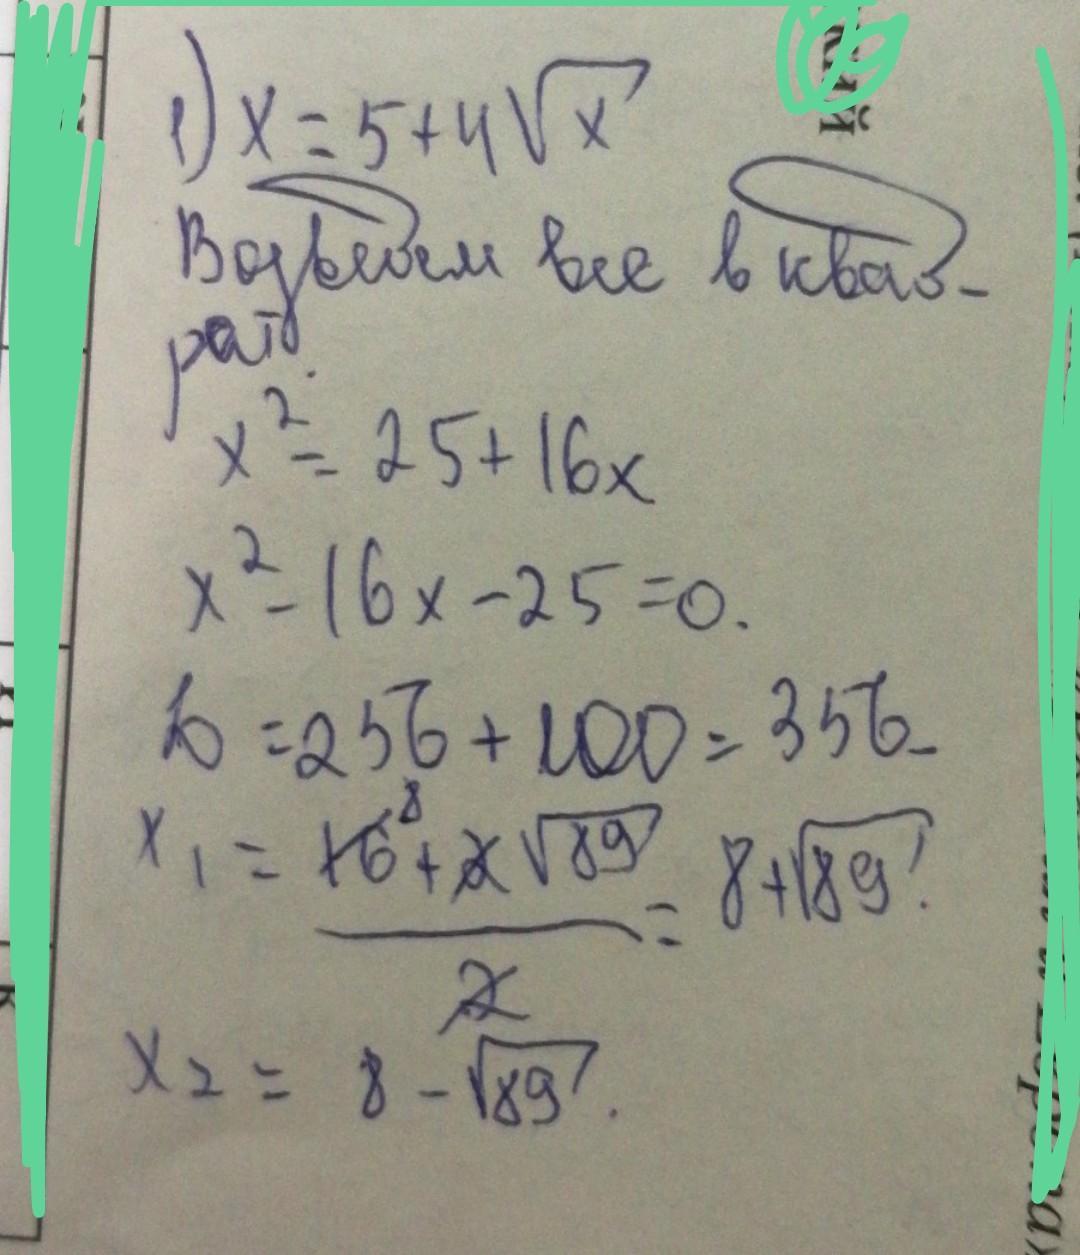 1) x = 5 + 4√x
Возведем все в квад-
рат.
x² = 25 + 16x
x² - 16x - 25 = 0.
D = 256 + 100 = 356
x₁ = (16 ⁸ + 2√89) / 2 = 8 + √89.
x₂ = 8 - √89.